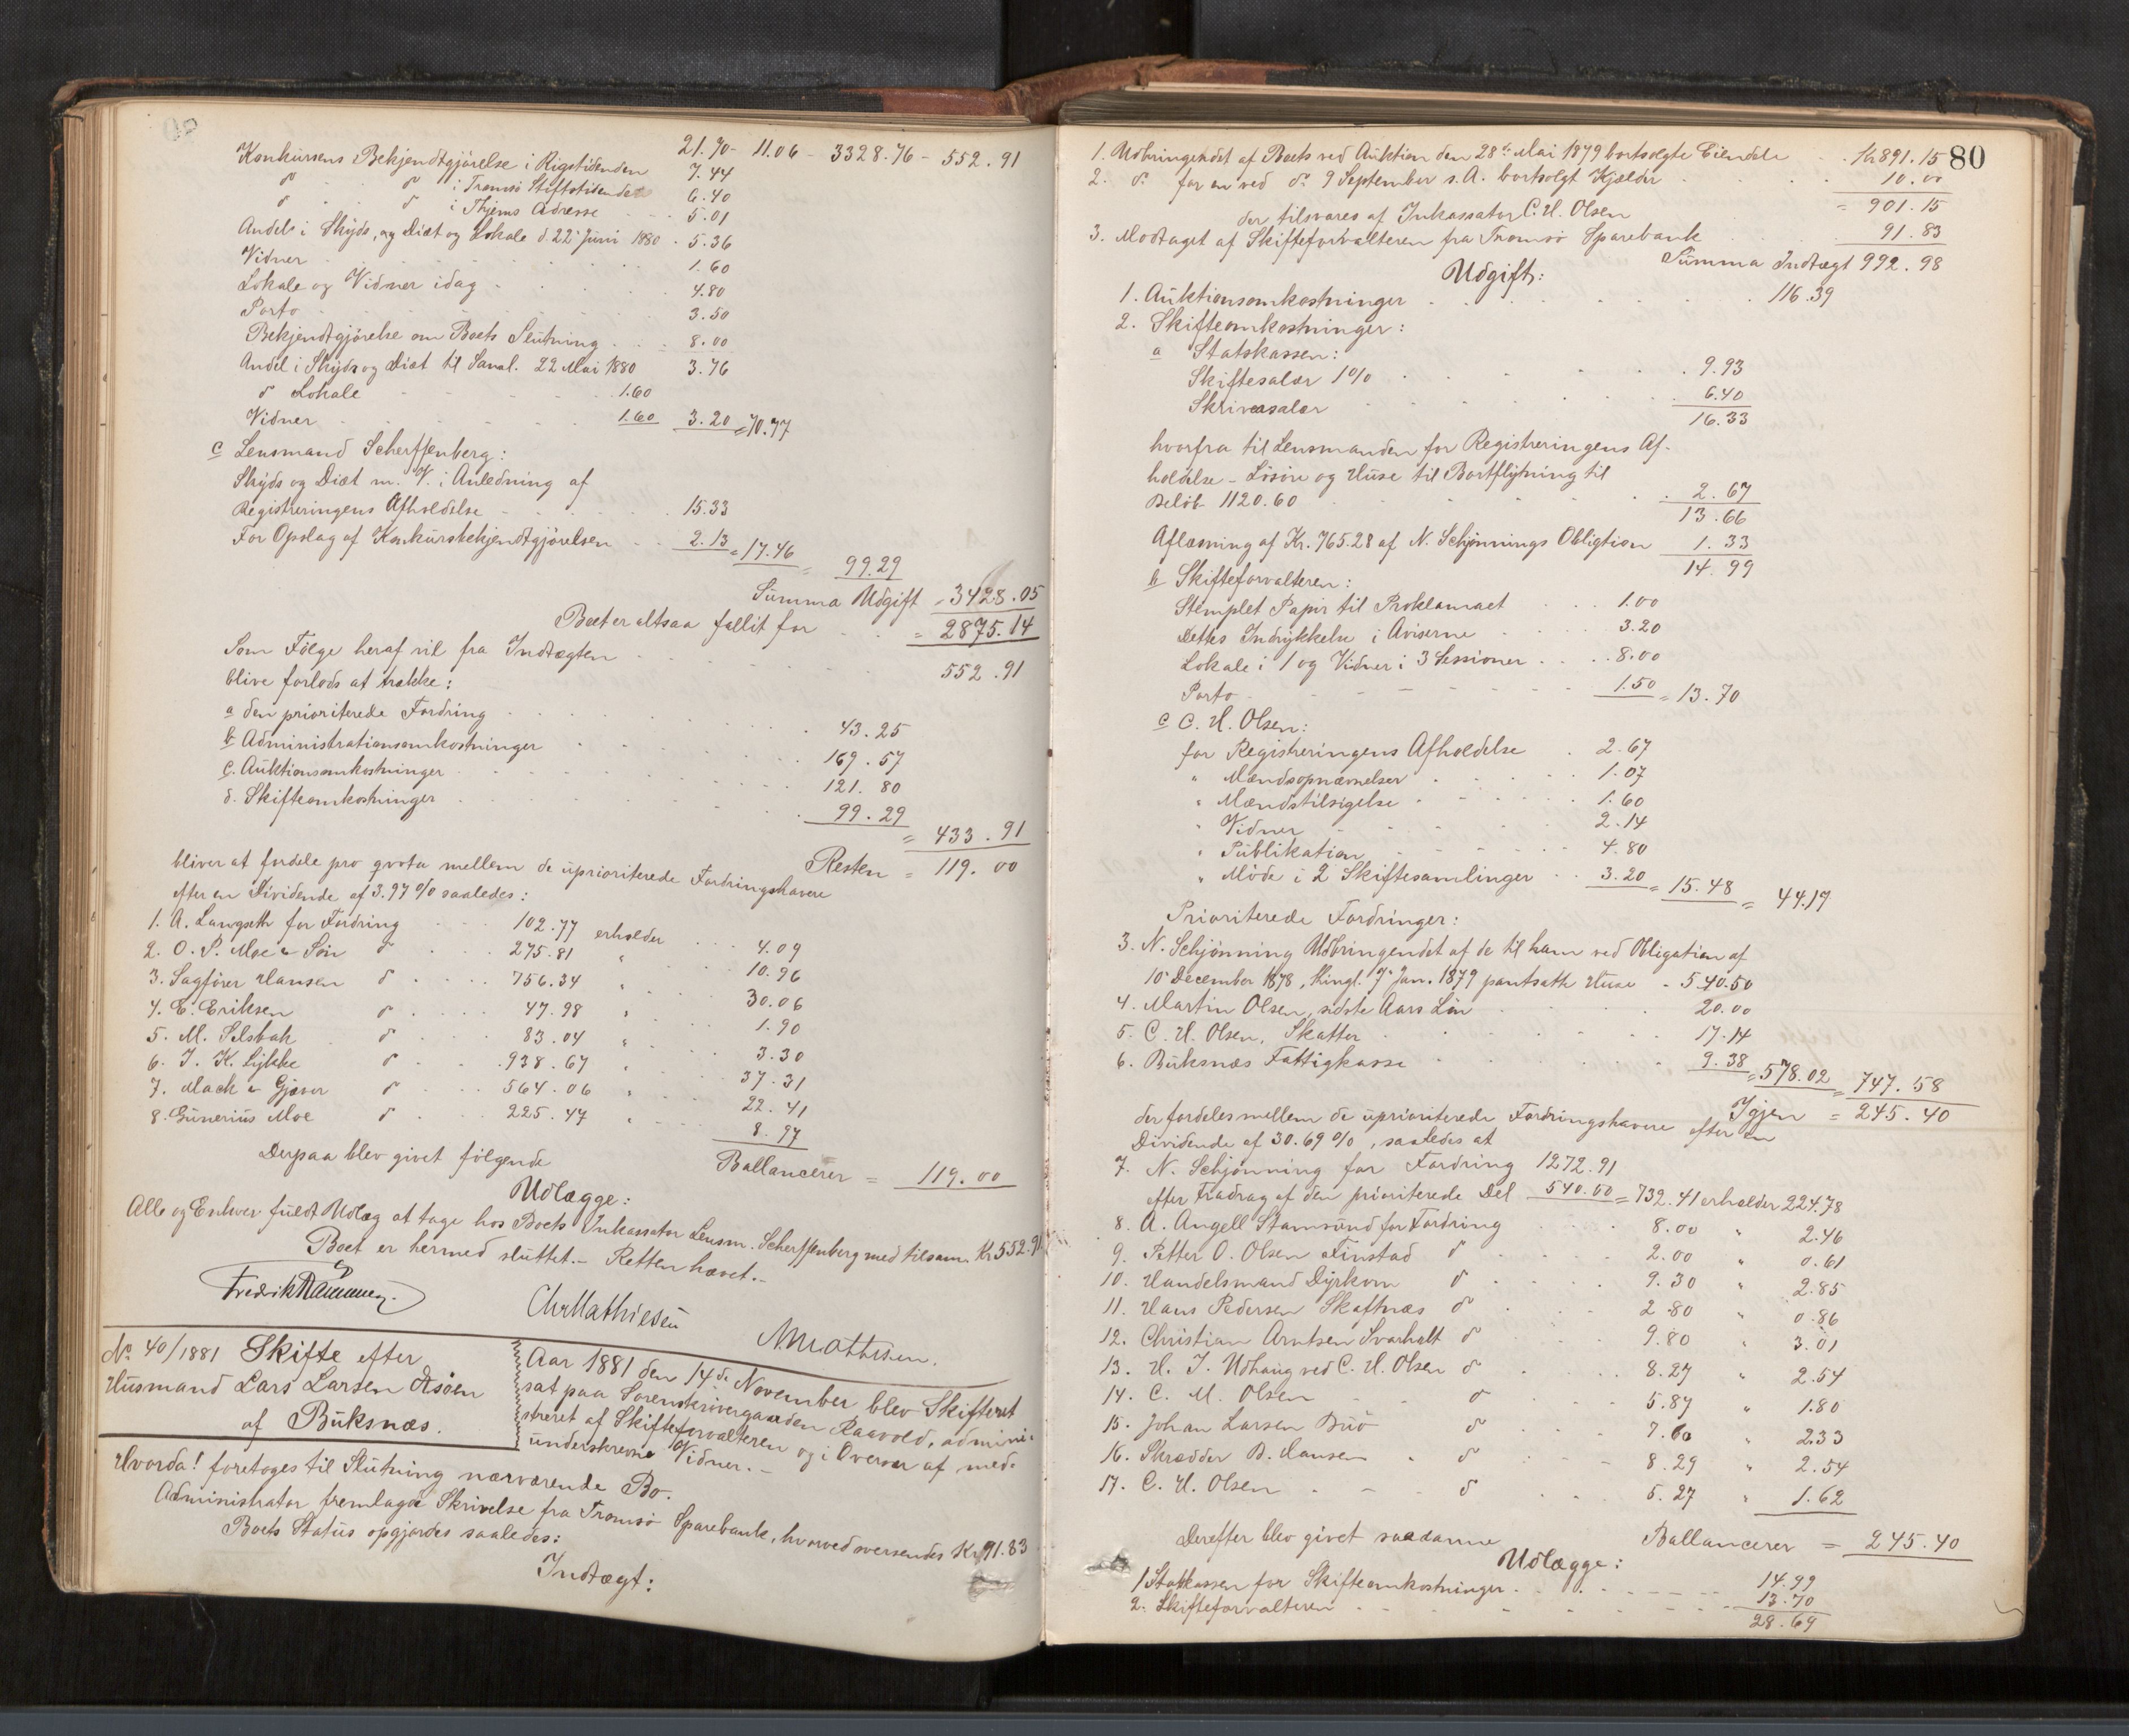 21.70 - 11.06 - 3328.76 - 552.91
Konkursens Bekjendtgjörelse i Rigstidenden 7.44
d° d° i Tromsö Stiftstidende 6.40
d° d° i Thjems Adresse 5.01
Andel i Skyds, og Diæt og Lokale d. 22 Juni 1880 5.36
Vidner 1.60
Lokale og Vidner idag 4.80
Porto 3.50
Bekjendtgjörelse om Boets Slutning 8.00
Andel i Skyds og Diæt til Saml. 22 Mai 1880 3.76
d° Lokale 1.60
Vidner 1.60 3.20 = 70.77
c Lensmand Scherffenberg:
Skyds og Diæt m. V. i Anledning af
Registreringens Afholdelse 15.33
For Opslag af Konkursbekjendtgjörelsen 2.13 = 17.46 = 99.29
Summa Udgift = 3428.05
Boet er altsaa fallit for = 2875.14
Som Fölge heraf vil fra Indtægten 552.91
blive forlods at trække:
a den prioriterede Fordring 43.25
b Administrationsomkostninger 169.57
c. Auktionsomkostninger 121.80
d. Skifteomkostninger 99.29 = 433.91
Resten = 119.00
bliver at fordele pro qvota mellem de uprioriterede Fordringshavere
efter en Dividende af 3.97 % saaledes:
1. A. Langseth for Fordring 102.77 erholder 4.09
2. O. P. Moe & Sön d° 275.81 " 10.96
3. Sagförer Hansen d° 756.34 " 30.06
4. E. Eriksen d° 47.98 " 1.90
5. M. Selsbak d° 83.04 " 3.30
6. J. K. Lykke d° 938.67 " 37.31
7. Mack & Gjæver d° 564.06 " 22.41
8. Gunerius Moe d° 225.47 " 8.97
Ballancerer = 119.00
Derpaa blev givet fölgende
Udlægge:
Alle og Enhver fuldt Udlæg at tage hos Boets Inkassator Lensm. Scherffenberg med tilsam. Kr 552.91
Boet er hermed sluttet. - Retten hævet. -
Fredrik Rammen.
Chr Mathiesen
N. Mathisen.
No 40/1881 Skifte efter
Husmand Lars Larsen
af Buksnæs.
Aar 1881 den 14de November blev Skifteret
sat paa Sorenskrivergaarden Raavold, admini-
streret af Skifteforvalteren og i Overvær af med-
underskrevne Vidner. -
Hvorda! foretoges til Slutning nærværende Bo.
Administrator fremlagde Skrivelse fra Tromsö Sparebank, hvorved oversendes Kr 91.83
Boets Status opgjordes saaledes:
Indtægt:
80
1. Udbringendet af Boets ved Auktion den 28de Mai 1879 bortsolgte Eiendele Kr 891.15
2. d° for en ved d° 9 September s. A. bortsolgt Kjælder 10.00
= 901.15
der tilsvares af Inkassator C. H. Olsen
3. Modtaget af Skifteforvalteren fra Tromsö Sparebank 91.83
Summa Indtægt 992.98
Udgift:
1. Auktionsomkostninger 116.39
2. Skifteomkostninger:
a Statskassen:
Skiftesalær 1% 9.93
Skriversalær 6.40
16.33
hvorfra til Lensmanden for Registreringens Af-
holdelse - Lösöre og Huse til Bortflytning til
Beløb 1120.60 2.67
13.66
Aflæsning af Kr. 765.28 af N. Schjönnings Obligtion 1.33
14.99
b Skifteforvalteren:
Stemplet Papir til Proklamaet 1.00
Dettes Indrykkelse i Aviserne 3.20
Lokale i 1 og Vidner i 3 Sessioner 8.00
Porto 1.50 = 13.70
c C. H. Olsen:
for Registreringens Afholdelse 2.67
" Mændsopnævnelser 1.07
" Mændstilsigelse 1.60
" Vidner 2.14
" Publikation 4.80
" Möde i 2 Skiftesamlinger 3.20 = 15.48 = 44.17
Prioriterede Fordringer:
3. N. Schjönning Udbringendet af de til ham ved Obligation af
10 December 1878, thingl. 7 Jan. 1879 pantsatte Huse 540.50
4. Martin Olsen, sidste Aars Lön 20.00
5. C. H. Olsen, Skatter 17.14
6. Buksnæs Fattigkasse 9.38 = 578.02 = 747.58
Igjen = 245.40
der fordeles mellem de uprioriterede Fordringshavere efter en
Dividende af 30.69 %, saaledes at
7. N. Schjönning for Fordring 1272.91
efter Fradrag af den prioriterede Del 540.50 = 732.41 erholder 224.78
8. A. Angell Stamsund for Fordring 8.00 " 2.46
9. Petter O. Olsen Finstad d° 2.00 " 0.61
10. Handelsmand Dyrkorn d° 9.30 " 2.85
11. Hans Pedersen Skaftnæs d° 2.80 " 0.86
12. Christian Arntsen Svarholt d° 9.80 " 3.01
13. H. J. Udhaug ved C. H. Olsen d° 8.27 " 2.54
14. C. M. Olsen d° 5.87 " 1.80
15. Johan Larsen d° 7.60 " 2.33
16. Skrædder B. Hansen d° 8.29 " 2.54
17. C. H. Olsen d° 5.27 " 1.62
Ballancerer = 245.40
Derefter blev givet saadanne
Udlægge:
1 Statskassen for Skifteomkostninger 14.99
2. Skifteforvalteren 13.70
28.69